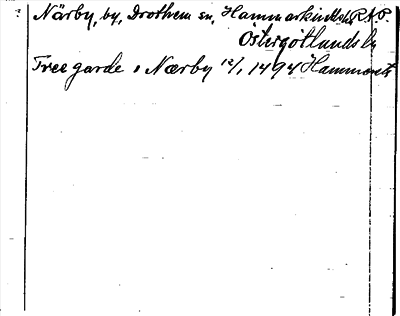 Närby, by, Drothem sn, Hammarkinds hd
Östergötlands län
Tree garde i Nærby 12/1 1494 Hammersta